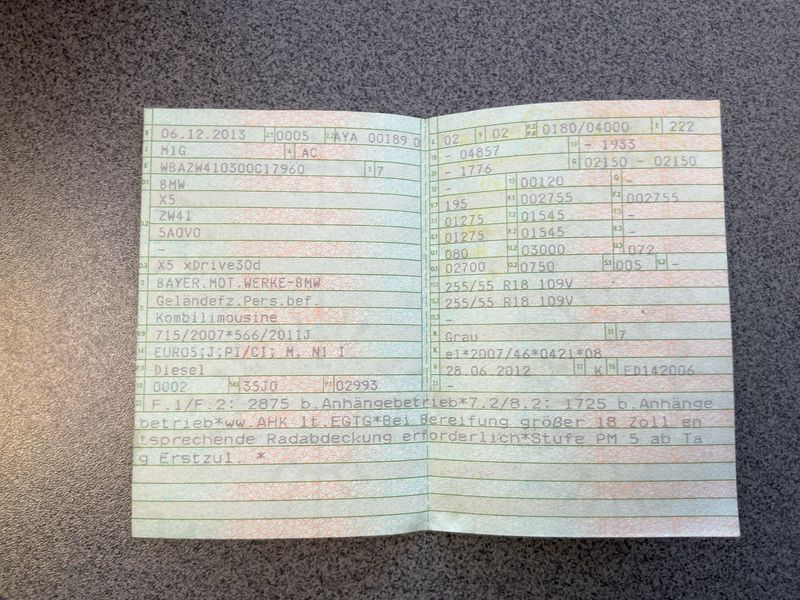 06.12.2013 2.1 0005 2.2 AYA 00189 0
M1G 4 AC
E WBAZW410300C17960 3 7
D.1 BMW
X5
ZW41
D.2 5A0V0
–
D.3 X5 xDrive30d
2 BAYER.MOT.WERKE-BMW
5 Geländefz.Pers.bef.
Kombilimousine
V.9 715/2007*566/2011J
14 EURO5;J;PI/CI; M, N1 I
P.3 Diesel
10 0002 14.1 35J0 P.1 02993
L 02 9 02 P.2/P.4 0180/04000 T 222
18 - 04857 19 - 1933
20 - 1776 G 02150 - 02150
12 - 13 00120 Q -
V.7 195 F.1 002755 F.2 002755
7.1 01275 7.2 01545 7.3 -
8.1 01275 8.2 01545 8.3 -
U.1 080 U.2 03000 U.3 072
O.1 02700 O.2 0750 S.1 005 S.2 -
15.1 255/55 R18 109V
15.2 255/55 R18 109V
15.3 -
R Grau 11 7
K e1*2007/46*0421*08
6 28.06.2012 17 K 16 ED142006
21 -
22 F.1/F.2: 2875 b.Anhängebetrieb*7.2/8.2: 1725 b.Anhänge
betrieb*ww.AHK lt.EGTG*Bei Bereifung größer 18 Zoll en
tsprechende Radabdeckung erforderlich*Stufe PM 5 ab Ta
g Erstzul. *